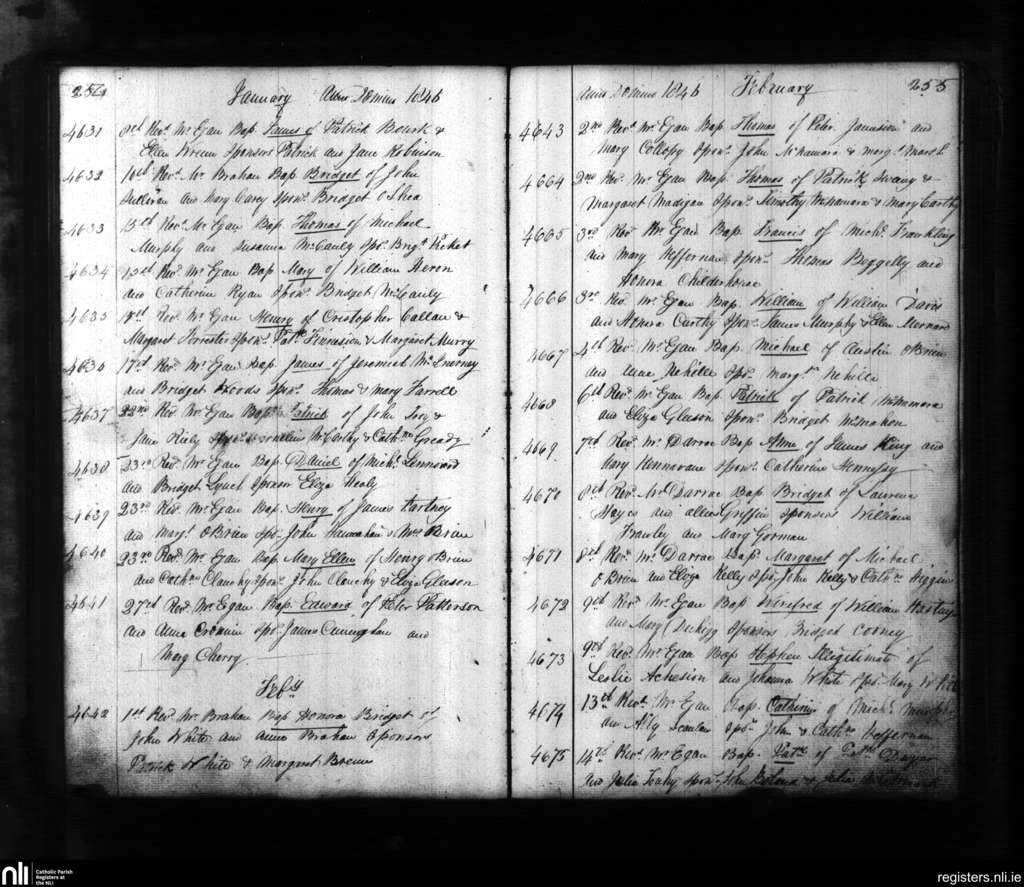 254
January Anno Domini 1846
4631 8th Revd. Mr. Egan Bap. James of Patrick Bourk &
Ellen Wrenn Sponsors Patrick and Jane Robinson
4632 10th Revd. Mr. Brahan Bap. Bridget of John
Sullivan and Mary Carey Sponr. Bridget O'Shea
4633 15th Revd. Mr. Egan Bap. Thomas of Michael
Murphy and Susanna McCauly Spr. Brigt.
4634 Revd. Mr. Egan Bap. Mary of William Heron
and Catherine Ryan Sponr. Bridget McCauly
4635 Revd. Mr. Egan Henry of Cristopher Callan &
Margaret Forrester Sponr. Patk. Finnasion & Margaret Murry
4636 17th Revd. Mr. Egan Bap. James of Jeremiah McInerney
and Bridget Woods Sponr. Thomas & Mary Farrell
4637 22nd Revd. Mr. Egan Bap. Patrick of John &
Jane Riely Sponr. Cornelius McCarthy & Cathn. Gready
4638 23rd Revd. Mr. Egan Bap. Daniel of Michl. Lennard
and Bridget Lynch Sponsor Eliza Healy
4639 23rd Revd. Mr. Egan Bap. Henry of James Hartney
and Margt. O'Brien Spr. John Hannahan & Mrs. Brien
4640 23rd Revd. Mr. Egan Bap. Mary Ellen of Henry O'Brien
and Cathn. Clanchy Sponr. John Clanchy & Eliza Gleeson
4641 27th Revd. Mr. Egan Bap. Edward of Peter Patterson
and Anne Cronin Spr. James Cunningham and
Mary Cherry
Feby.
4642 1st Revd. Mr. Brahan Bap. Honora Bridget of
John White and Anne Brahan Sponsors
Patrick White & Margaret Breene
Anno Domini 1846 February
255
4643 2nd Revd. Mr. Egan Bap. Thomas of Peter Jameson and
Mary Collopy Sponr. John McNamara & Margt. Marsh
4664 2nd Revd. Mr. Egan Bap. Thomas of Patrick Swany &
Margaret Madigan Sponr. Timothy McNamara & Mary Carthy
4665 3rd Revd. Mr. Egan Bap. Francis of Michl. Frankling
and Mary Heffernan Sponr. Thomas Beggelly and
Honora Childerhouse
4666 3rd Revd. Mr. Egan Bap. William of William Davis
and Honora Carthy Sponr. James Murphy & Ellen Murnane
4667 4th Revd. Mr. Egan Bap. Michael of Austin O'Brien
and Anne Nehille Spr. Margt. Nehille
4668 6th Revd. Mr. Egan Bap. Patrick of Patrick McNamara
and Eliza Gleeson Sponr. Bridget McMahon
4669 7th Revd. Mr. Darrac Bap. Anne of James King and
Mary Kennavane Sponr. Catherine Hennessy
4670 8th Revd. Mr. Darrac Bap. Bridget of Laurence
Hayes and Alice Griffin Sponsors William
Frawley and Mary Gorman
4671 8th Revd. Mr. Darrac Bap. Margaret of Michael
O'Brien and Eliza Kelly Spr. John Kelly & Cathn. Higgins
4672 9th Revd. Mr. Egan Bap. Winefred of William Hastings
and Mary Duhigg Sponsors Bridget Cooney
4673 9th Revd. Mr. Egan Bap. Stephen Illegitimate of
Leslie Acheson and Johanna White Spr. Mary White
4674 13th Revd. Mr. Egan Bap. Catherine of Michl. Murphy
and Ally Scanlan Spr. John & Cathn. Heffernan
4675 14th Revd. Mr. Egan Bap. Patk. of Patk. Dwyer
and Julia Sponr. John Boland &
nli
Catholic Parish
Registers at
the NLI
registers.nli.ie